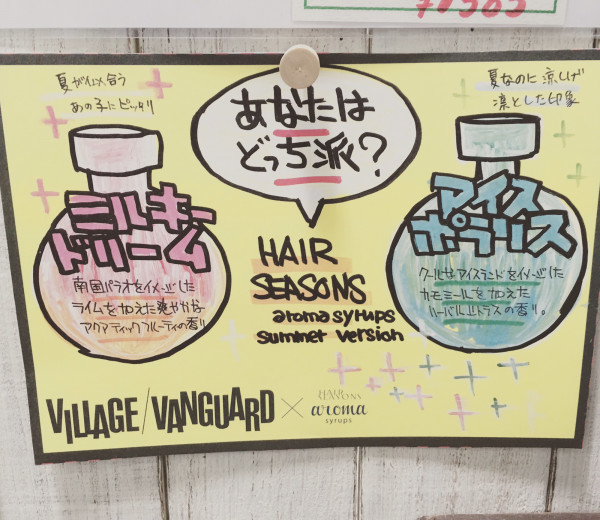 夏が似合う
あの子にピッタリ
あなたは
どっち派?
夏なのに涼しげ
凛とした印象
ミルキー
ドリーム
南国パラオをイメージした
ライムを加えた爽やかな
アクアティックフルーティの香り。
HAIR
SEASONS
aroma syrups
summer version
アイス
ポラリス
クールなアイスランドをイメージした
カモミールを加えた
ハーバルシトラスの香り。
VILLAGE/VANGUARD × aroma
syrups